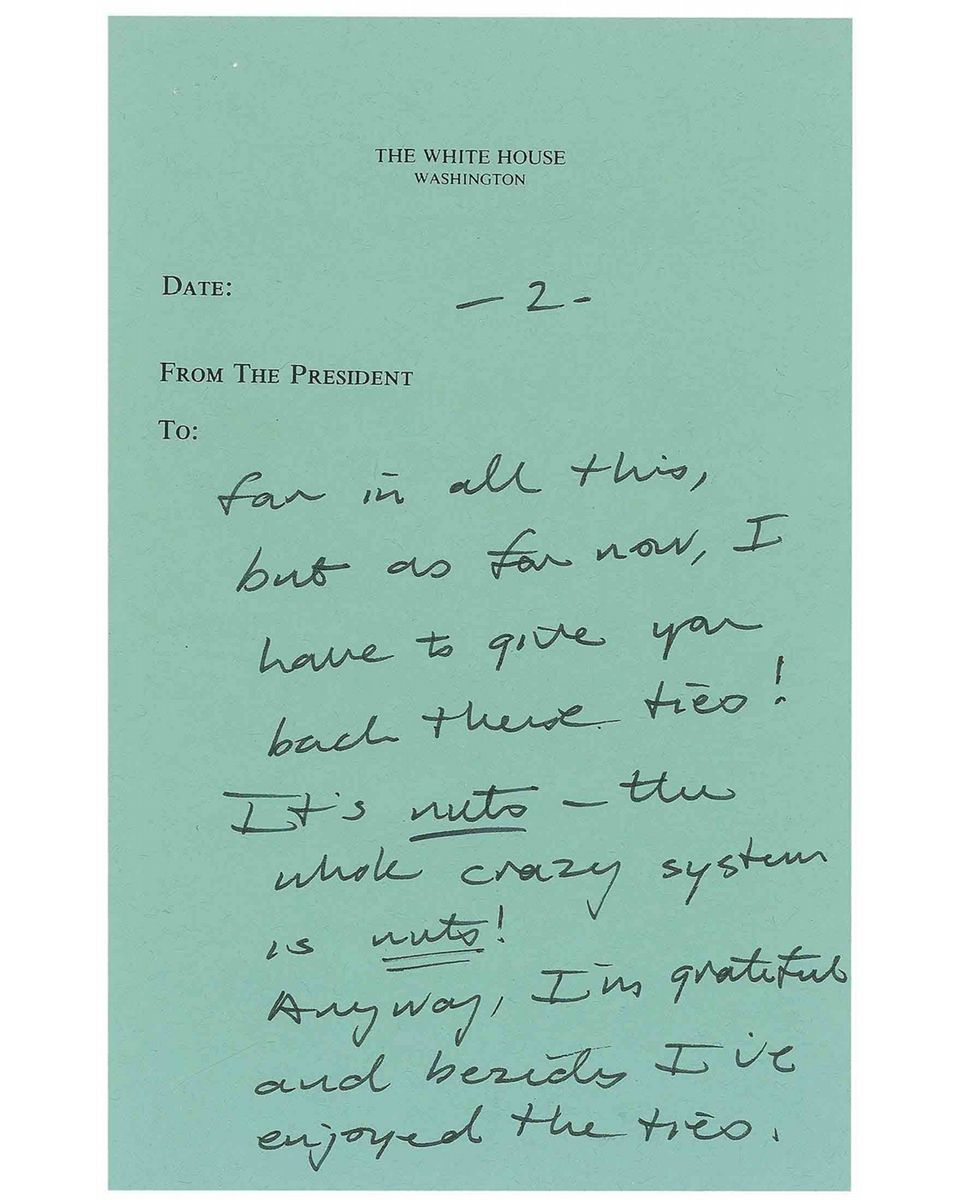 THE WHITE HOUSE
WASHINGTON
DATE:
— 2 -
FROM THE PRESIDENT
TO:
far in all this,
but as for now, I
have to give you
back these ties!
It's nuts — the
whole crazy system
is nuts!
Anyway, I'm grateful
and besides I've
enjoyed the ties.